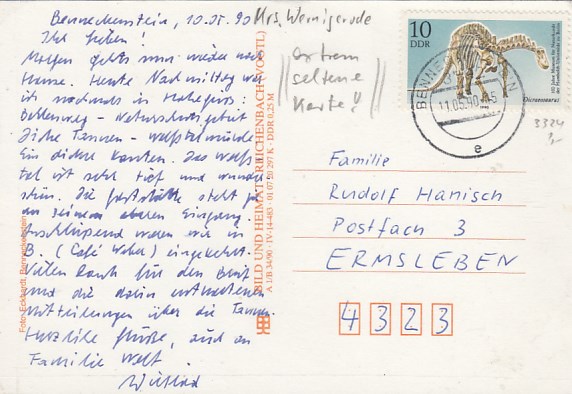 Benneckenstein, 10.05.90
Ihr Lieben!
Morgen geht's nun wieder nach
Hause. Heute Nachmittag war
ich nochmals in
Naturschutzgebiet
Dicke Tannen - 
Ein dicker Das
tal ist sehr tief und
Die Gaststätte steht ja
an seinem oberen Eingang.
Anschließend waren wir in
B. (Café Weber) eingekehrt.
Vielen Dank für den Brief
und die darin enthaltenen
Mitteilungen über die Tannen.
Herzliche Grüße, auch an
Familie Wolf.
Krs. Wernigerode
extrem
seltene
Karte!
Foto: Eckhardt, Benneckenstein
BILD UND HEIMAT REICHENBACH (VOGTL)
A 1/B 34/90 · IV-14-483 · 01 07 10 297 K · DDR 0,25 M
10
DDR
Dicraeosaurus
11.05.90
e
3324
Familie
Rudolf Hanisch
Postfach 3
ERMSLEBEN
4323